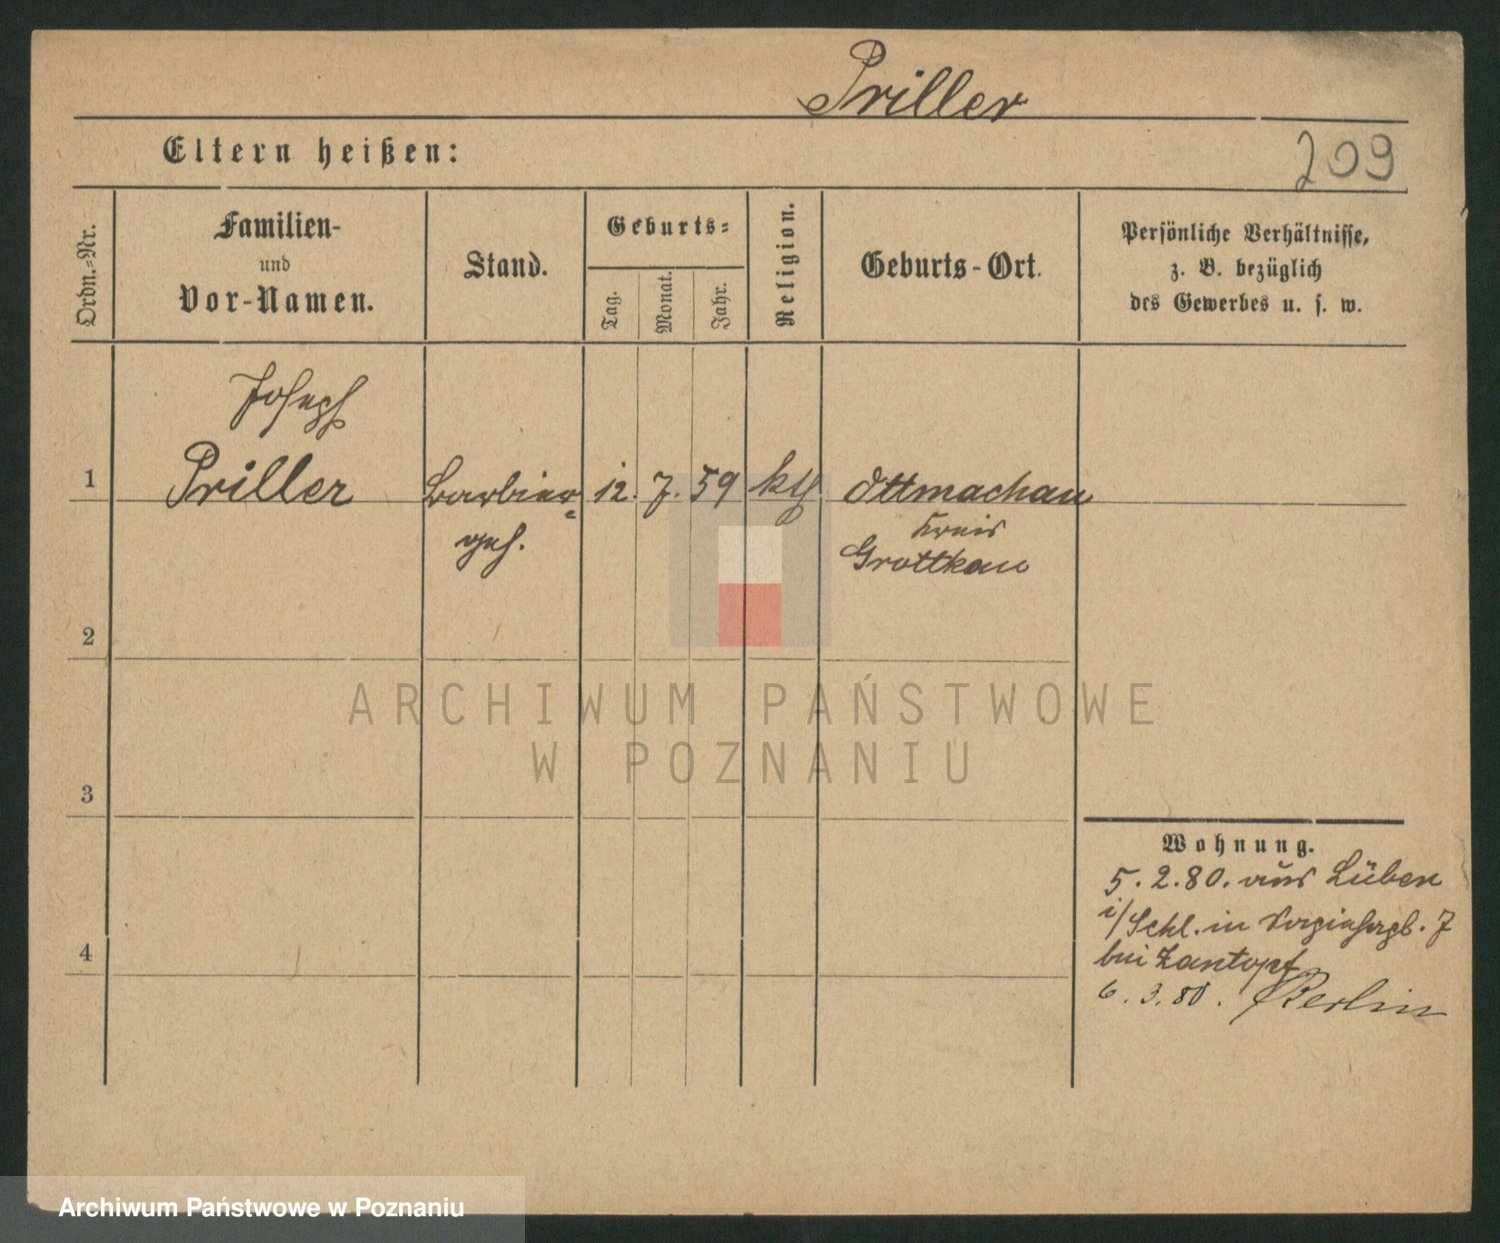 Priller
Eltern heißen:
209
Ordn.-Nr.
Familien-
und
Vor-Namen.
Stand.
Geburts-
Tag.
Monat.
Jahr.
Religion.
Geburts-Ort.
Persönliche Verhältnisse,
z. B. bezüglich
des Gewerbes u. s. w.
Joseph
1 Priller Barbier- 12. 7. 59 kth Ottmachau
geh. Kreis
Grottkau
2
3
4
Wohnung.
5. 2. 80. aus Lüben
i/Schl. in 7
bei Zantopf
6. 3. 80. Berlin
ARCHIWUM PAŃSTWOWE
W POZNANIU
Archiwum Państwowe w Poznaniu